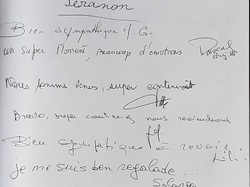 Seranon
Bien sympathique M. G.
un super Moment, Beaucoup d'émotions Pascal
Nous sommes venus, super contents
Bravo, super continuez nous reviendrons
Bien sympatique à revoir
je me suis ben regalade
Solange